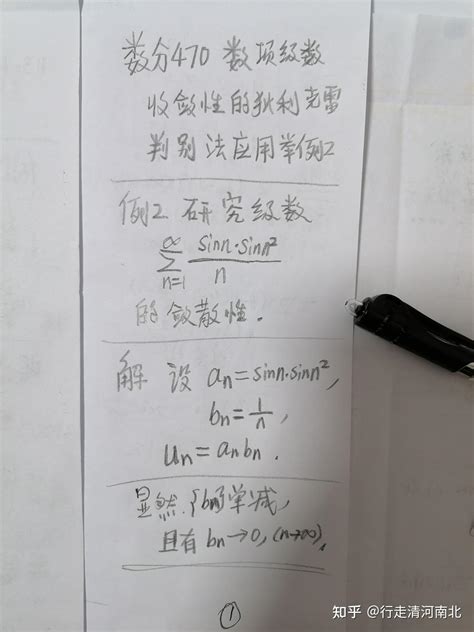 数分470 数项级数
收敛性的狄利克雷
判别法应用举例2
例2 研究级数
∞
∑ sinn·sinn²/n
n=1
的敛散性.
解 设 an=sinn·sinn²,
bn=1/n,
un=anbn.
显然,{bn}单减,
且有 bn→0,(n→∞),
①
知乎 @行走清河南北